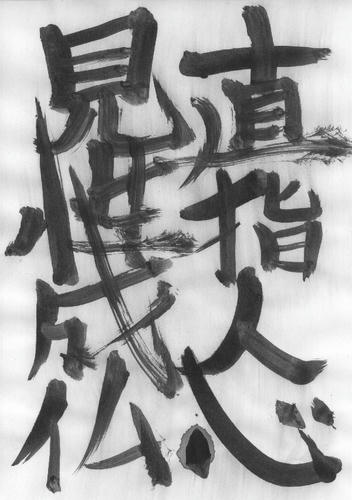 直指人心
見性成仏